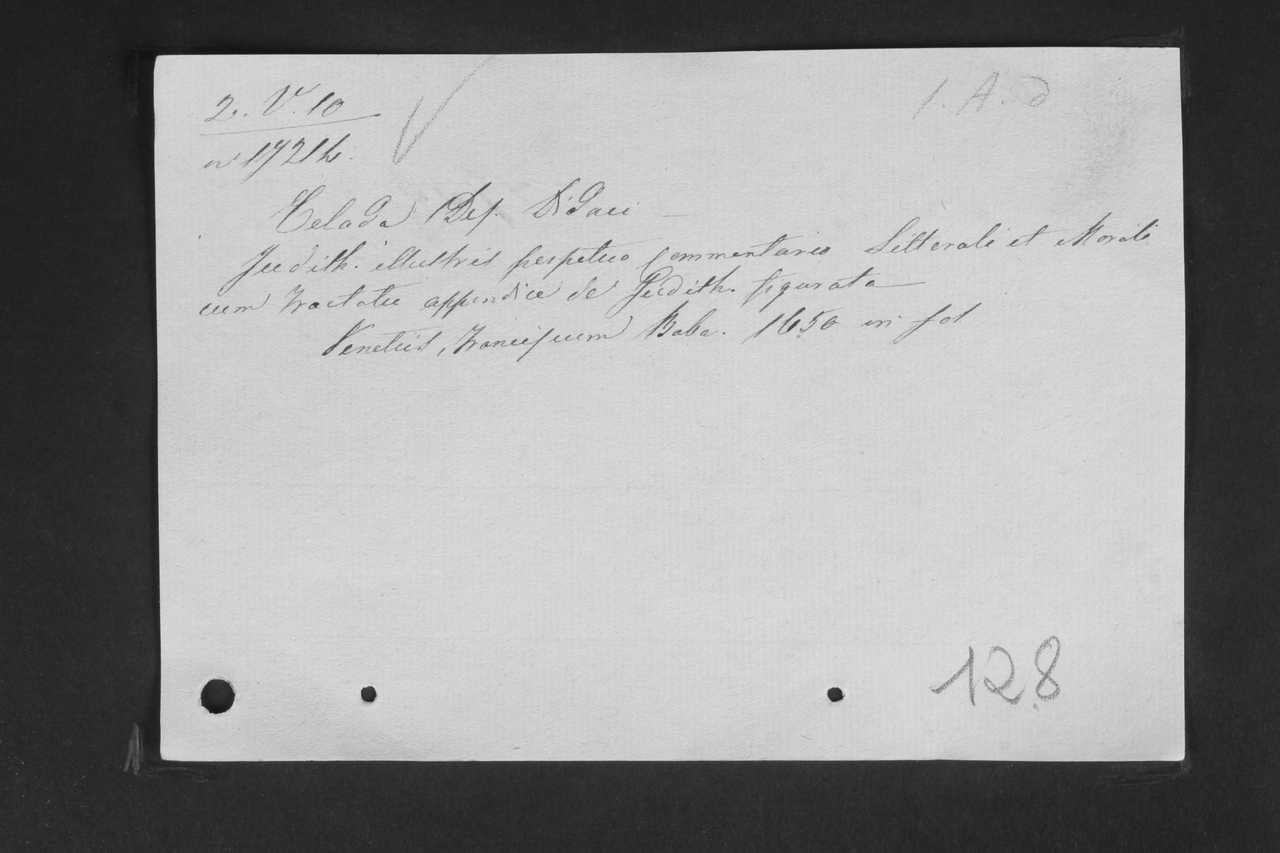 2. V. 10
1. A. d
nº 1721 h.
Celada Def. Didaci —
Judith. illustris perpetuo commentario Litterali et Morali
cum tractatu appendice de Judith. figurata
Venetiis, Franciscum Baba. 1650 in fol
128